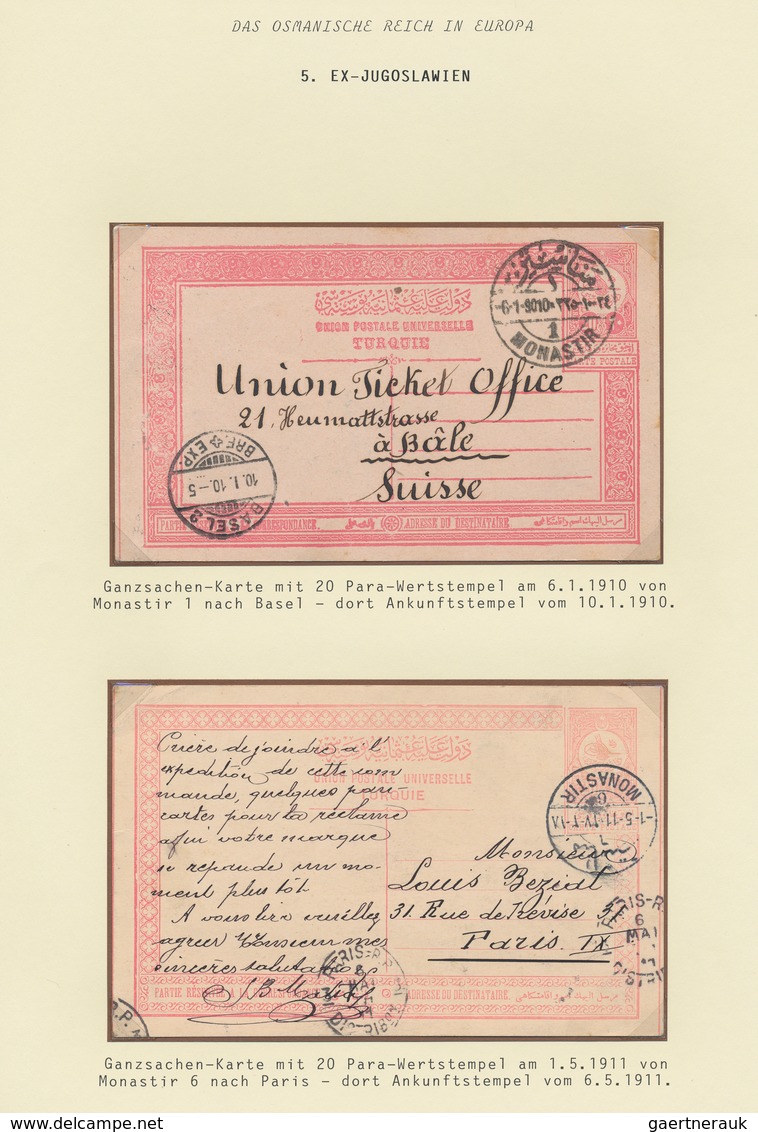 DAS OSMANISCHE REICH IN EUROPA
5. EX-JUGOSLAWIEN
UNION POSTALE UNIVERSELLE
TURQUIE
6-1-9010
1
MONASTIR
CARTE POSTALE
Union Ticket Office
21, Heumattstrasse
à Bâle
Suisse
BRF. EXP.
10.I.10.-5
BASEL 2
ADRESSE DU DESTINATAIRE
Ganzsachen-Karte mit 20 Para-Wertstempel am 6.1.1910 von
Monastir 1 nach Basel - dort Ankunftstempel vom 10.1.1910.
دولت عليهٔ عثمانيه
UNION POSTALE UNIVERSELLE
TURQUIE
MONASTIR
6
-1-5-11
Prière de joindre à l'
expédition de cette com
mande, quelques pan-
cartes pour la réclame
afin votre marque
se répande un mo-
ment plus tôt
A vous lire veuillez
agréer Monsieur mes
sincères salutations
Monsieur
Louis Beziat
31. Rue de Trévise 31
Paris IX
6
MAI
ADRESSE DU DESTINATAIRE.
Ganzsachen-Karte mit 20 Para-Wertstempel am 1.5.1911 von
Monastir 6 nach Paris - dort Ankunftstempel vom 6.5.1911.
gaertnerauk